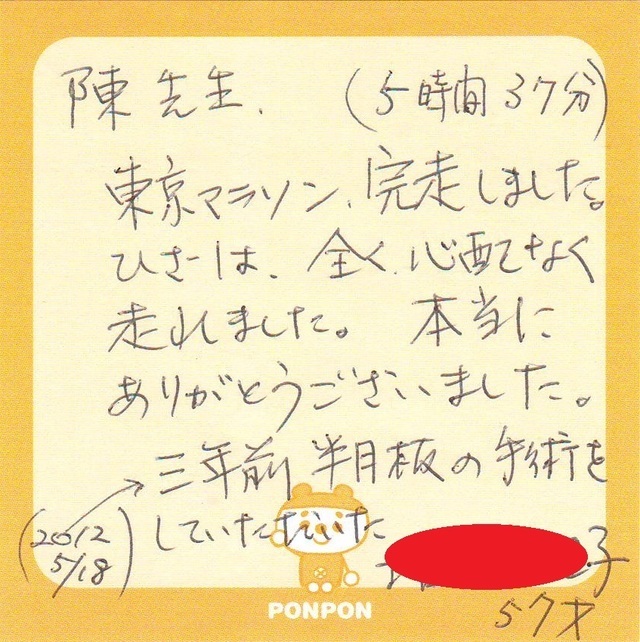 陳先生、 (5時間37分)
東京マラソン、完走しました。
ひざは、全く心配なく
走れました。 本当に
ありがとうございました。
三年前 半月板の手術を
(2012 していただいた
5/18)
子
PONPON
57才